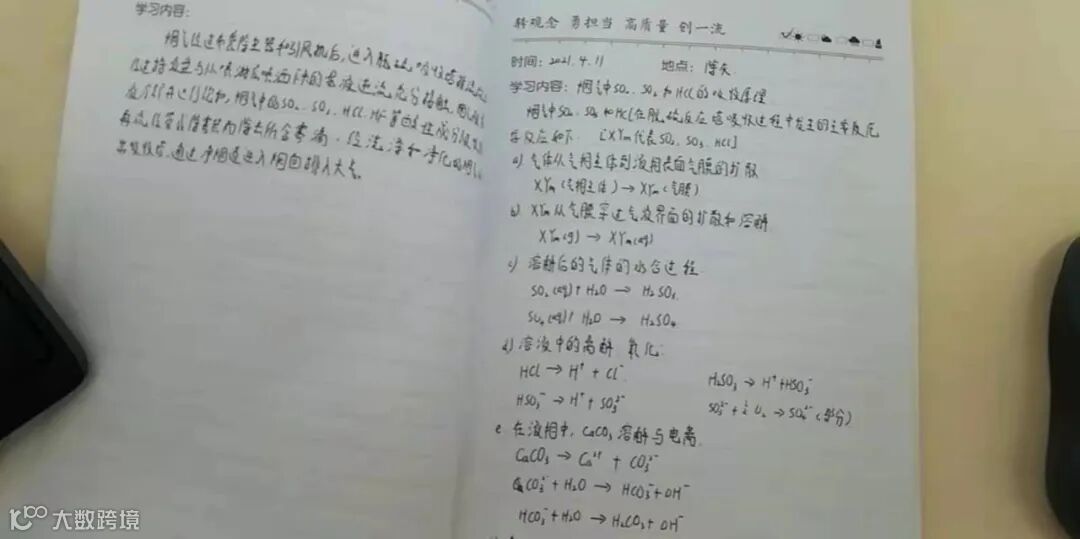 学习内容:
烟气经过布袋除尘器和引风机后,进入脱硫吸收塔
逆流充分接触,
应介质进行, 烟气中的SO₂、SO₃、HCl、HF等
再流经 除去所含雾滴、经洗涤和净化的烟气
出吸收塔,通过净烟道进入烟囱排入大气。
转观念 勇担当 高质量 创一流
时间: 2021.4.11 地点:
学习内容: 烟气中SO₂、SO₃和HCl的吸收原理
烟气中SO₂、SO₃和HCl在脱硫反应塔吸收过程中发生的主要
反应如下: [XYm代表SO₂、SO₃、HCl]
a) 气体从气相主体到液相表面气膜的扩散
XYm(气相主体) → XYm(气膜)
b) XYm从气膜穿过气液界面的扩散和溶解
XYm(g) → XYm(aq)
c) 溶解后的气体的水合过程
SO₂(aq) + H₂O → H₂SO₃
SO₃(aq) + H₂O → H₂SO₄
d) 溶液中的离解 氧化
HCl → H⁺ + Cl⁻
H₂SO₃ → H⁺ + HSO₃⁻
HSO₃⁻ → H⁺ + SO₃²⁻
SO₃²⁻ + ½ O₂ → SO₄²⁻ (部分)
e 在液相中, CaCO₃溶解与电离
CaCO₃ → Ca²⁺ + CO₃²⁻
CO₃²⁻ + H₂O → HCO₃⁻ + OH⁻
HCO₃⁻ + H₂O → H₂CO₃ + OH⁻
大数跨境